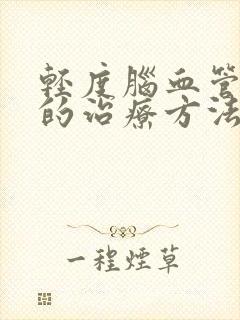 輕度腦血管
的治療方法
一程煙草